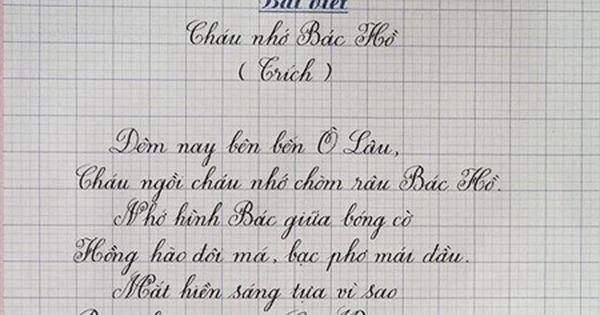 Bài viết
Cháu nhớ Bác Hồ
( Trích )
Đêm nay bên bến Ô Lâu,
Cháu ngồi cháu nhớ chòm râu Bác Hồ.
Nhớ hình Bác giữa bóng cờ
Hồng hào đôi má, bạc phơ mái đầu.
Mắt hiền sáng tựa vì sao